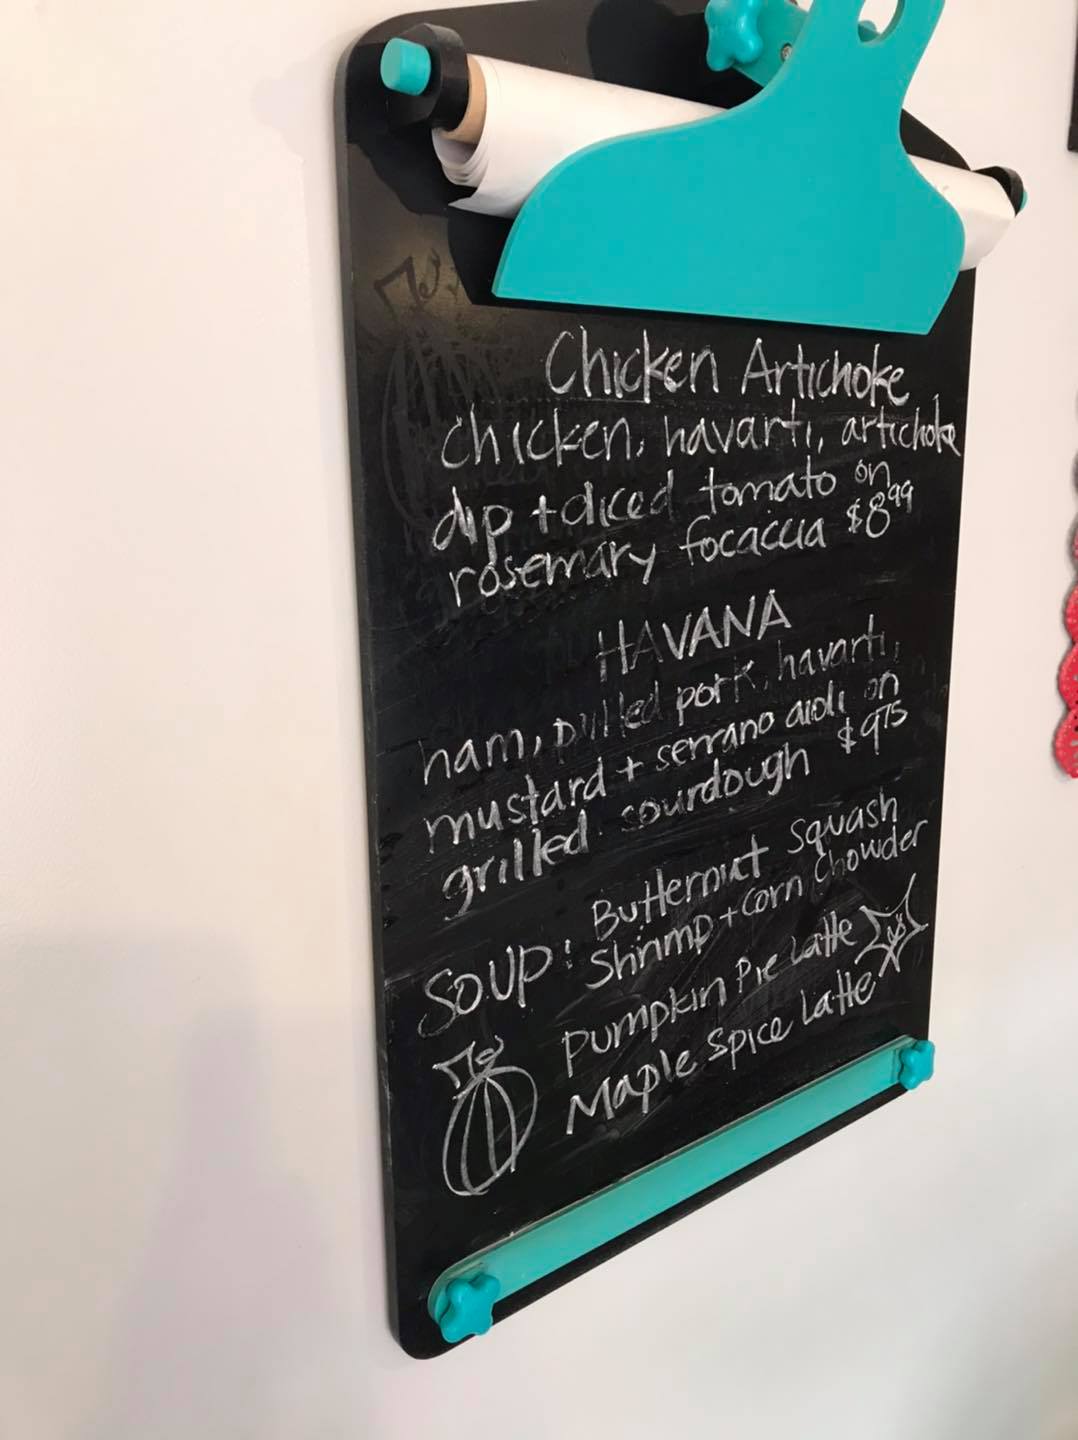 Chicken Artichoke
chicken, havarti, artichoke
dip + diced tomato on
rosemary focaccia $8.99
HAVANA
ham, pulled pork, havarti,
mustard + serrano aioli on
grilled sourdough $9.75
SOUP: Butternut Squash
Shrimp + Corn Chowder
Pumpkin Pie Latte
Maple Spice Latte